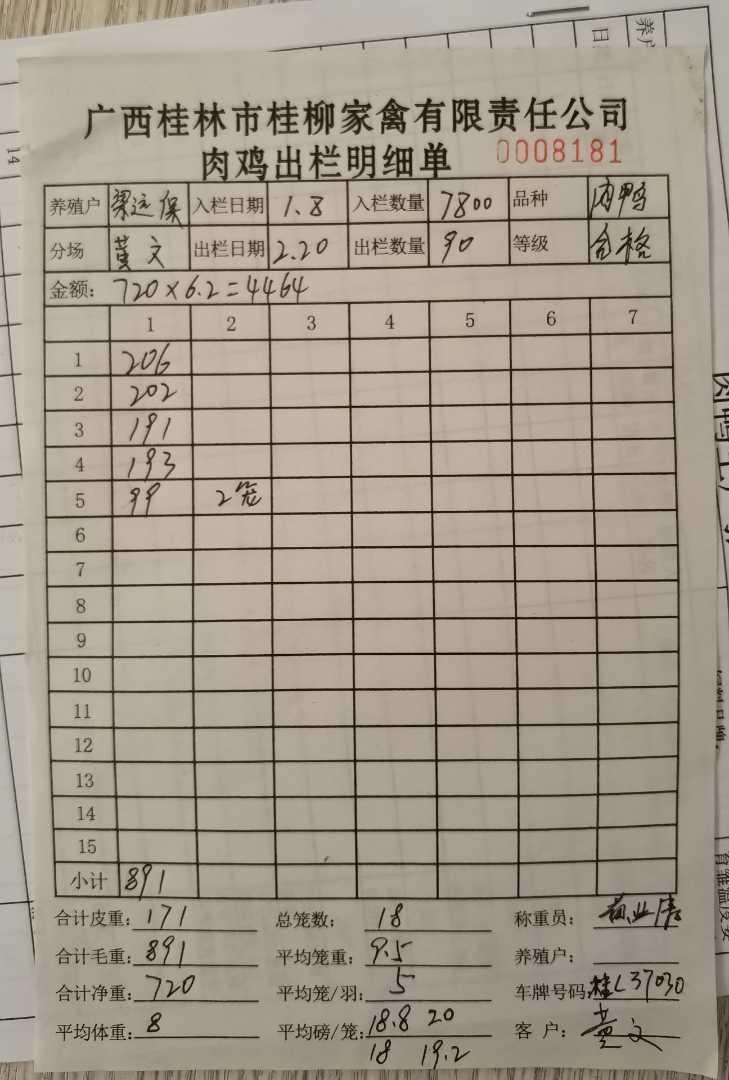 广西桂林市桂柳家禽有限责任公司
肉鸡出栏明细单 0008181
养殖户 梁运保 入栏日期 1.8 入栏数量 7800 品种 肉鸭
分场 黄文 出栏日期 2.20 出栏数量 90 等级 合格
金额: 720×6.2=4464
1 2 3 4 5 6 7
1 206
2 202
3 191
4 193
5 99 2笼
6
7
8
9
10
11
12
13
14
15
小计 891
合计皮重: 171 总笼数: 18 称重员:
合计毛重: 891 平均笼重: 9.5 养殖户:
合计净重: 720 平均笼/羽: 5 车牌号码: 桂L37030
平均体重: 8 平均磅/笼: 18.8 20 客户: 黄文
18 19.2
养户
日
14